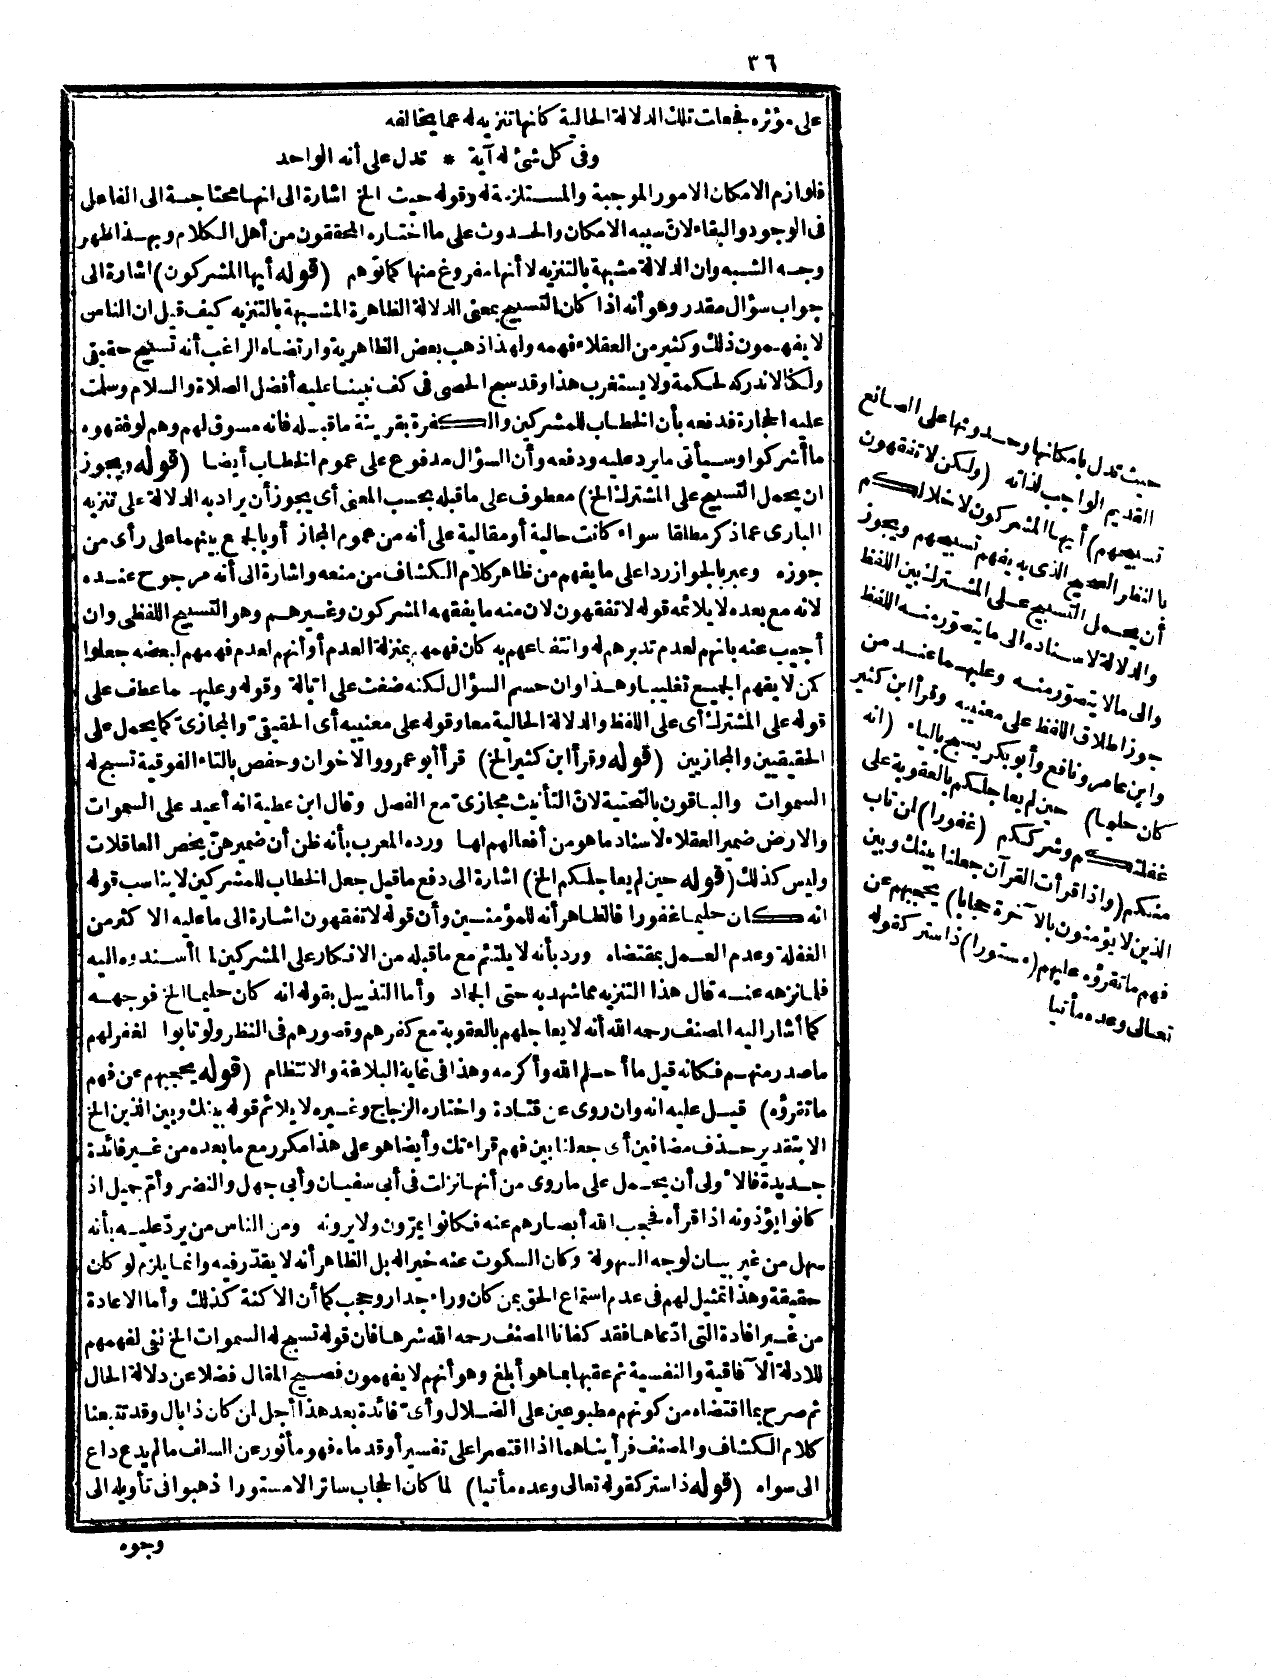 ٣٦
على مؤثره فجعلت تلك الدلالة الحالية كأنها تنزيه له عما يخالفه
وفى كل شئ له آية * تدل على أنه الواحد
فلوازم الامكان الامور الموجبة والمستلزمة له وقوله حيث الخ اشارة الى انها محتاجة الى الفاعل
فى الوجود والبقاء لان سببه الامكان والحدوث على ما اختاره المحققون من أهل الكلام وبهذا ظهر
وجه الشبه وان الدلالة مشبهة بالتنزيه لا أنها مفروغ منها كما توهم (قوله أيها المشركون) اشارة الى
جواب سؤال مقدر وهو أنه اذا كان التسبيح بمعنى الدلالة الظاهرة المشبهة بالتنزيه كيف قيل ان الناس
لا يفهمون ذلك وكثير من العقلاء فهمه ولهذا ذهب بعض الظاهرية وارتضاه الراغب أنه تسبيح حقيقى
ولكنا لا ندركه لحكمة ولا يستغرب هذا وقد سبح الحصى فى كف نبينا عليه أفضل الصلاة والسلام وسلمت
عليه الحجارة فدفعه بأن الخطاب للمشركين والكفرة بقرينة ما قبله فانه مسوق لهم وهم لو فقهوه
ما أشركوا وسيأتى ما يرد عليه ودفعه وأن السؤال مدفوع على عموم الخطاب أيضا (قوله ويجوز
ان يحمل التسبيح على المشترك الخ) معطوف على ما قبله بحسب المعنى أى يجوز أن يراد به الدلالة على تنزيه
البارى عما ذكر مطلقا سواء كانت حالية أو مقالية على أنه من عموم المجاز أو بالجمع بينهما على رأى من
جوزه وعبر بالجواز ردا على ما يفهم من ظاهر كلام الكشاف من منعه واشارة الى أنه مرجوح عنده
لانه مع بعده لا يلائمه قوله لا تفقهون لان منه ما يفقهه المشركون وغيرهم وهو التسبيح اللفظى وان
أجيب عنه بانهم لعدم تدبرهم له وانتفاعهم به كان فهمهم بمنزلة العدم أو أنهم لعدم فهمهم لبعضه جعلوا
كمن لا يفهم الجميع تغليبا وهذا وان حسم السؤال لكنه ضغث على ابالة وقوله وعليهما عطف على
قوله على المشترك أى على اللفظ والدلالة الحالية معا وقوله على معنييه أى الحقيقىّ والمجازىّ كما يحمل على
الحقيقيين والمجازيين (قوله وقرأ ابن كثير الخ) قرأ أبو عمرو والاخوان وحفص بالتاء الفوقية تسبح له
السموات والباقون بالتحتية لان التأنيث مجازىّ مع الفصل وقال ابن عطية انه أعيد على السموات
والارض ضمير العقلاء لاسناد ما هو من أفعالهم لها ورده المعرب بأنه ظن أن ضمير هنّ يخص العاقلات
وليس كذلك (قوله حين لم يعاجلكم الخ) اشارة الى دفع ما قيل جعل الخطاب للمشركين لا يناسب قوله
انه كان حليما غفورا فالظاهر أنه للمؤمنين وأن قوله لا تفقهون اشارة الى ما عليه الاكثر من
الغفلة وعدم العمل بمقتضاه ورد بأنه لا يلتئم مع ما قبله من الانكار على المشركين لما أسندوه اليه
فلما نزهه عنه قال هذا التنزيه مما شهد به حتى الجماد وأما التذييل بقوله انه كان حليما الخ فوجهه
كما أشار اليه المصنف رحمه الله أنه لا يعاجلهم بالعقوبة مع كفرهم وقصورهم فى النظر ولو تابوا لغفر لهم
ما صدر منهم فكانه قيل ما أحلم الله وأكرمه وهذا فى غاية البلاغة والانتظام (قوله يحجبهم عن فهم
ما تقرؤه) قيل عليه انه وان روى عن قتادة واختاره الزجاج وغيره لا يلائم قوله بينك وبين الذين الخ
الا بتقدير حذف مضافين أى جعلنا بين فهم قراءتك وأيضا هو على هذا مكرر مع ما بعده من غير فائدة
جديدة فالاولى أن يحمل على ما روى من أنها نزلت فى أبى سفيان وأبى جهل والنضر وأم جميل اذ
كانوا يؤذونه اذا قرأه فحجب الله أبصارهم عنه فكانوا يمرّون ولا يرونه ومن الناس من يردّ عليه بأنه
سهل من غير بيان لوجه السهولة وكان السكوت عنه خيرا له بل الظاهر أنه لا يقدّر فيه وانما يلزم لو كان
حقيقة وهذا تمثيل لهم فى عدم استماع الحق بمن كان وراء جدار وحجب كما أن الاكنة كذلك وأما الاعادة
من غير افادة التى ادّعاها فقد كفانا المصنف رحمه الله شرها فان قوله تسبح له السموات الخ نفى لفهمهم
للادلة الآفاقية والنفسية ثم عقبها بما هو أبلغ وهو أنهم لا يفهمون فصيح المقال فضلا عن دلالة الحال
ثم صرح بما اقتضاه من كونهم مطبوعين على الضلال وأىّ فائدة بعد هذا أجل لمن كان ذا بال وقد تتبعنا
كلام الكشاف والمصنف فرأيناهما اذا اقتصرا على تفسير أو قدماه فهو مأثور عن السلف ما لم يدع داع
الى سواه (قوله ذا ستر كقوله تعالى وعده مأتيا) لما كان الحجاب ساترا لا مستورا ذهبوا فى تأويله الى
وجوه
حيث تدل بامكانها وحدوثها على الصانع
القديم الواجب لذاته (ولكن لا تفقهون
تسبيحهم) أيها المشركون لاخلالكم
بالنظر الصحيح الذى به يفهم تسبيحهم ويجوز
أن يحمل التسبيح على المشترك بين اللفظ
والدلالة لاسناده الى ما يتصور منه اللفظ
والى ما لا يتصور منه وعليهما عند من
جوز اطلاق اللفظ على معنييه وقرأ ابن كثير
وابن عامر ونافع وأبو بكر يسبح بالياء (انه
كان حليما) حين لم يعاجلكم بالعقوبة على
غفلتكم وشرككم (غفورا) لمن تاب
منكم (واذا قرأت القرآن جعلنا بينك وبين
الذين لا يؤمنون بالآخرة حجابا) يحجبهم عن
فهم ما تقرؤه عليهم (مستورا) ذا ستر كقوله
تعالى وعده مأتيا